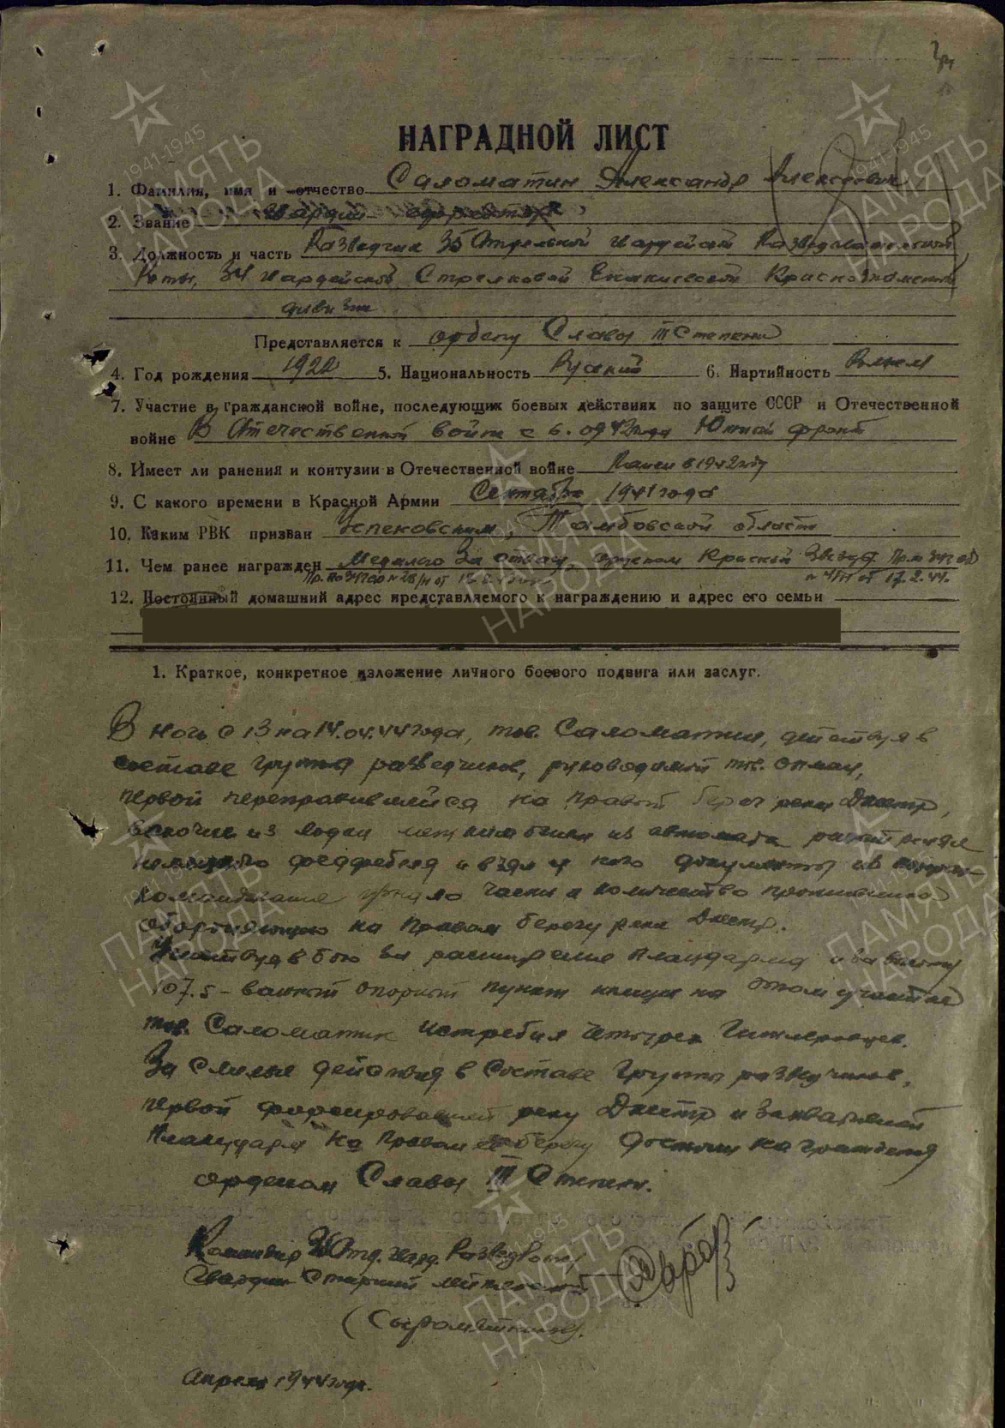 НАГРАДНОЙ ЛИСТ
1. Фамилия, имя и отчество Саломатин Александр Алексеевич
2. Звание гвардии ефрейтор
3. Должность и часть Разведчик 35 Отдельной гвардейской Разведывательной
Роты, 34 гвардейской Стрелковой Енакиевской Краснознаменной
дивизии
Представляется к ордену Славы III Степени
4. Год рождения 1922 5. Национальность Русский 6. Партийность
7. Участие в гражданской войне, последующих боевых действиях по защите СССР и Отечественной
войне В Отечественной войне с 6.0942 года Южный фронт
8. Имеет ли ранения и контузии в Отечественной войне Ранен в 1942 году
9. С какого времени в Красной Армии Сентября 1941 года
10. Каким РВК призван Тамбовской области
11. Чем ранее награжден Медалью За отвагу, орденом Красной Звезды
от 17.2.44.
12. Постоянный домашний адрес представляемого к награждению и адрес его семьи
1. Краткое, конкретное изложение личного боевого подвига или заслуг.
В ночь с 13 на 14.04.44 года, тов. Саломатин, действуя в
составе группы разведчиков, руководимой тов.
первой переправившейся на правый берег реки Днестр,
из лодки из автомата
немецкого фельдфебеля и взял у него документы
командование узнало части и количество противника
на правом берегу реки Днестр.
Участвуя в бою за расширение плацдарма и за высоту
107.5 - важный опорный пункт немцев на этом участке
тов. Саломатин истребил четырех гитлеровцев.
За смелые действия в составе группы разведчиков,
первой форсировавшей реку Днестр и захватившей
плацдарм на правом берегу достоин награждения
орденом Славы III Степени.
Командир 35 Отд. гвард. Разведроты
Гвардии Старший лейтенант
(Сыромятников).
Апрель 1944 года.
ПАМЯТЬ НАРОДА
1941-1945